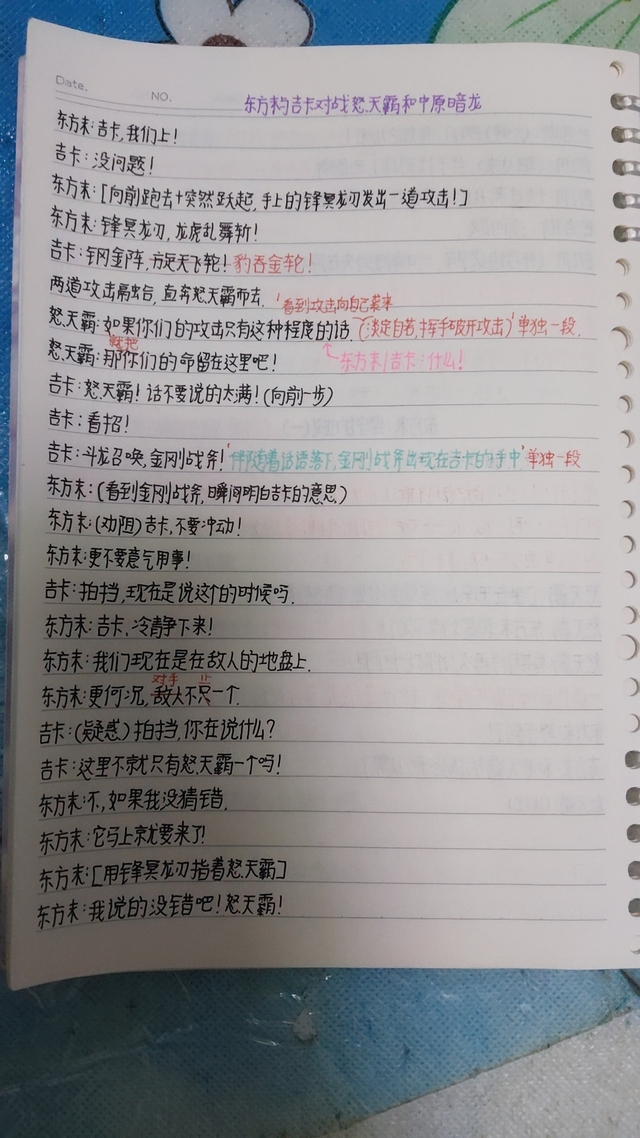 Date.
NO.
东方末与吉卡对战怒天霸和中原暗龙
东方末:吉卡,我们上!
吉卡:没问题!
东方末:[向前跑去+突然跃起,手上的锋冥龙刃发出一道攻击!]
东方末:锋冥龙刃,龙虎乱舞斩!
吉卡:钢金阵,旋天飞轮!豹吞金轮!
两道攻击扇出,直奔怒天霸而去
'看到攻击向自己袭来
怒天霸:如果你们的攻击只有这种程度的话.(淡定自若,挥手破开攻击)'单独一段.
就把
怒天霸:那你们的命留在这里吧!
东方末/吉卡:什么!
吉卡:怒天霸!话不要说的太满!(向前一步)
吉卡:看招!
吉卡:斗龙召唤,金刚战斧!'伴随着话语落下,金刚战斧出现在吉卡的手中'单独一段
东方末:(看到金刚战斧,瞬间明白吉卡的意思)
东方末:(劝阻)吉卡,不要冲动!
东方末:更不要意气用事!
吉卡:拍挡,现在是说这个的时候吗.
东方末:吉卡,冷静下来!
东方末:我们现在是在敌人的地盘上.
对手 止
东方末:更何况,敌人不只一个.
吉卡:(疑惑)拍挡,你在说什么?
吉卡:这里不就只有怒天霸一个吗!
东方末:不,如果我没猜错.
东方末:它马上就要来了!
东方末:[用锋冥龙刃指着怒天霸]
东方末:我说的没错吧!怒天霸!